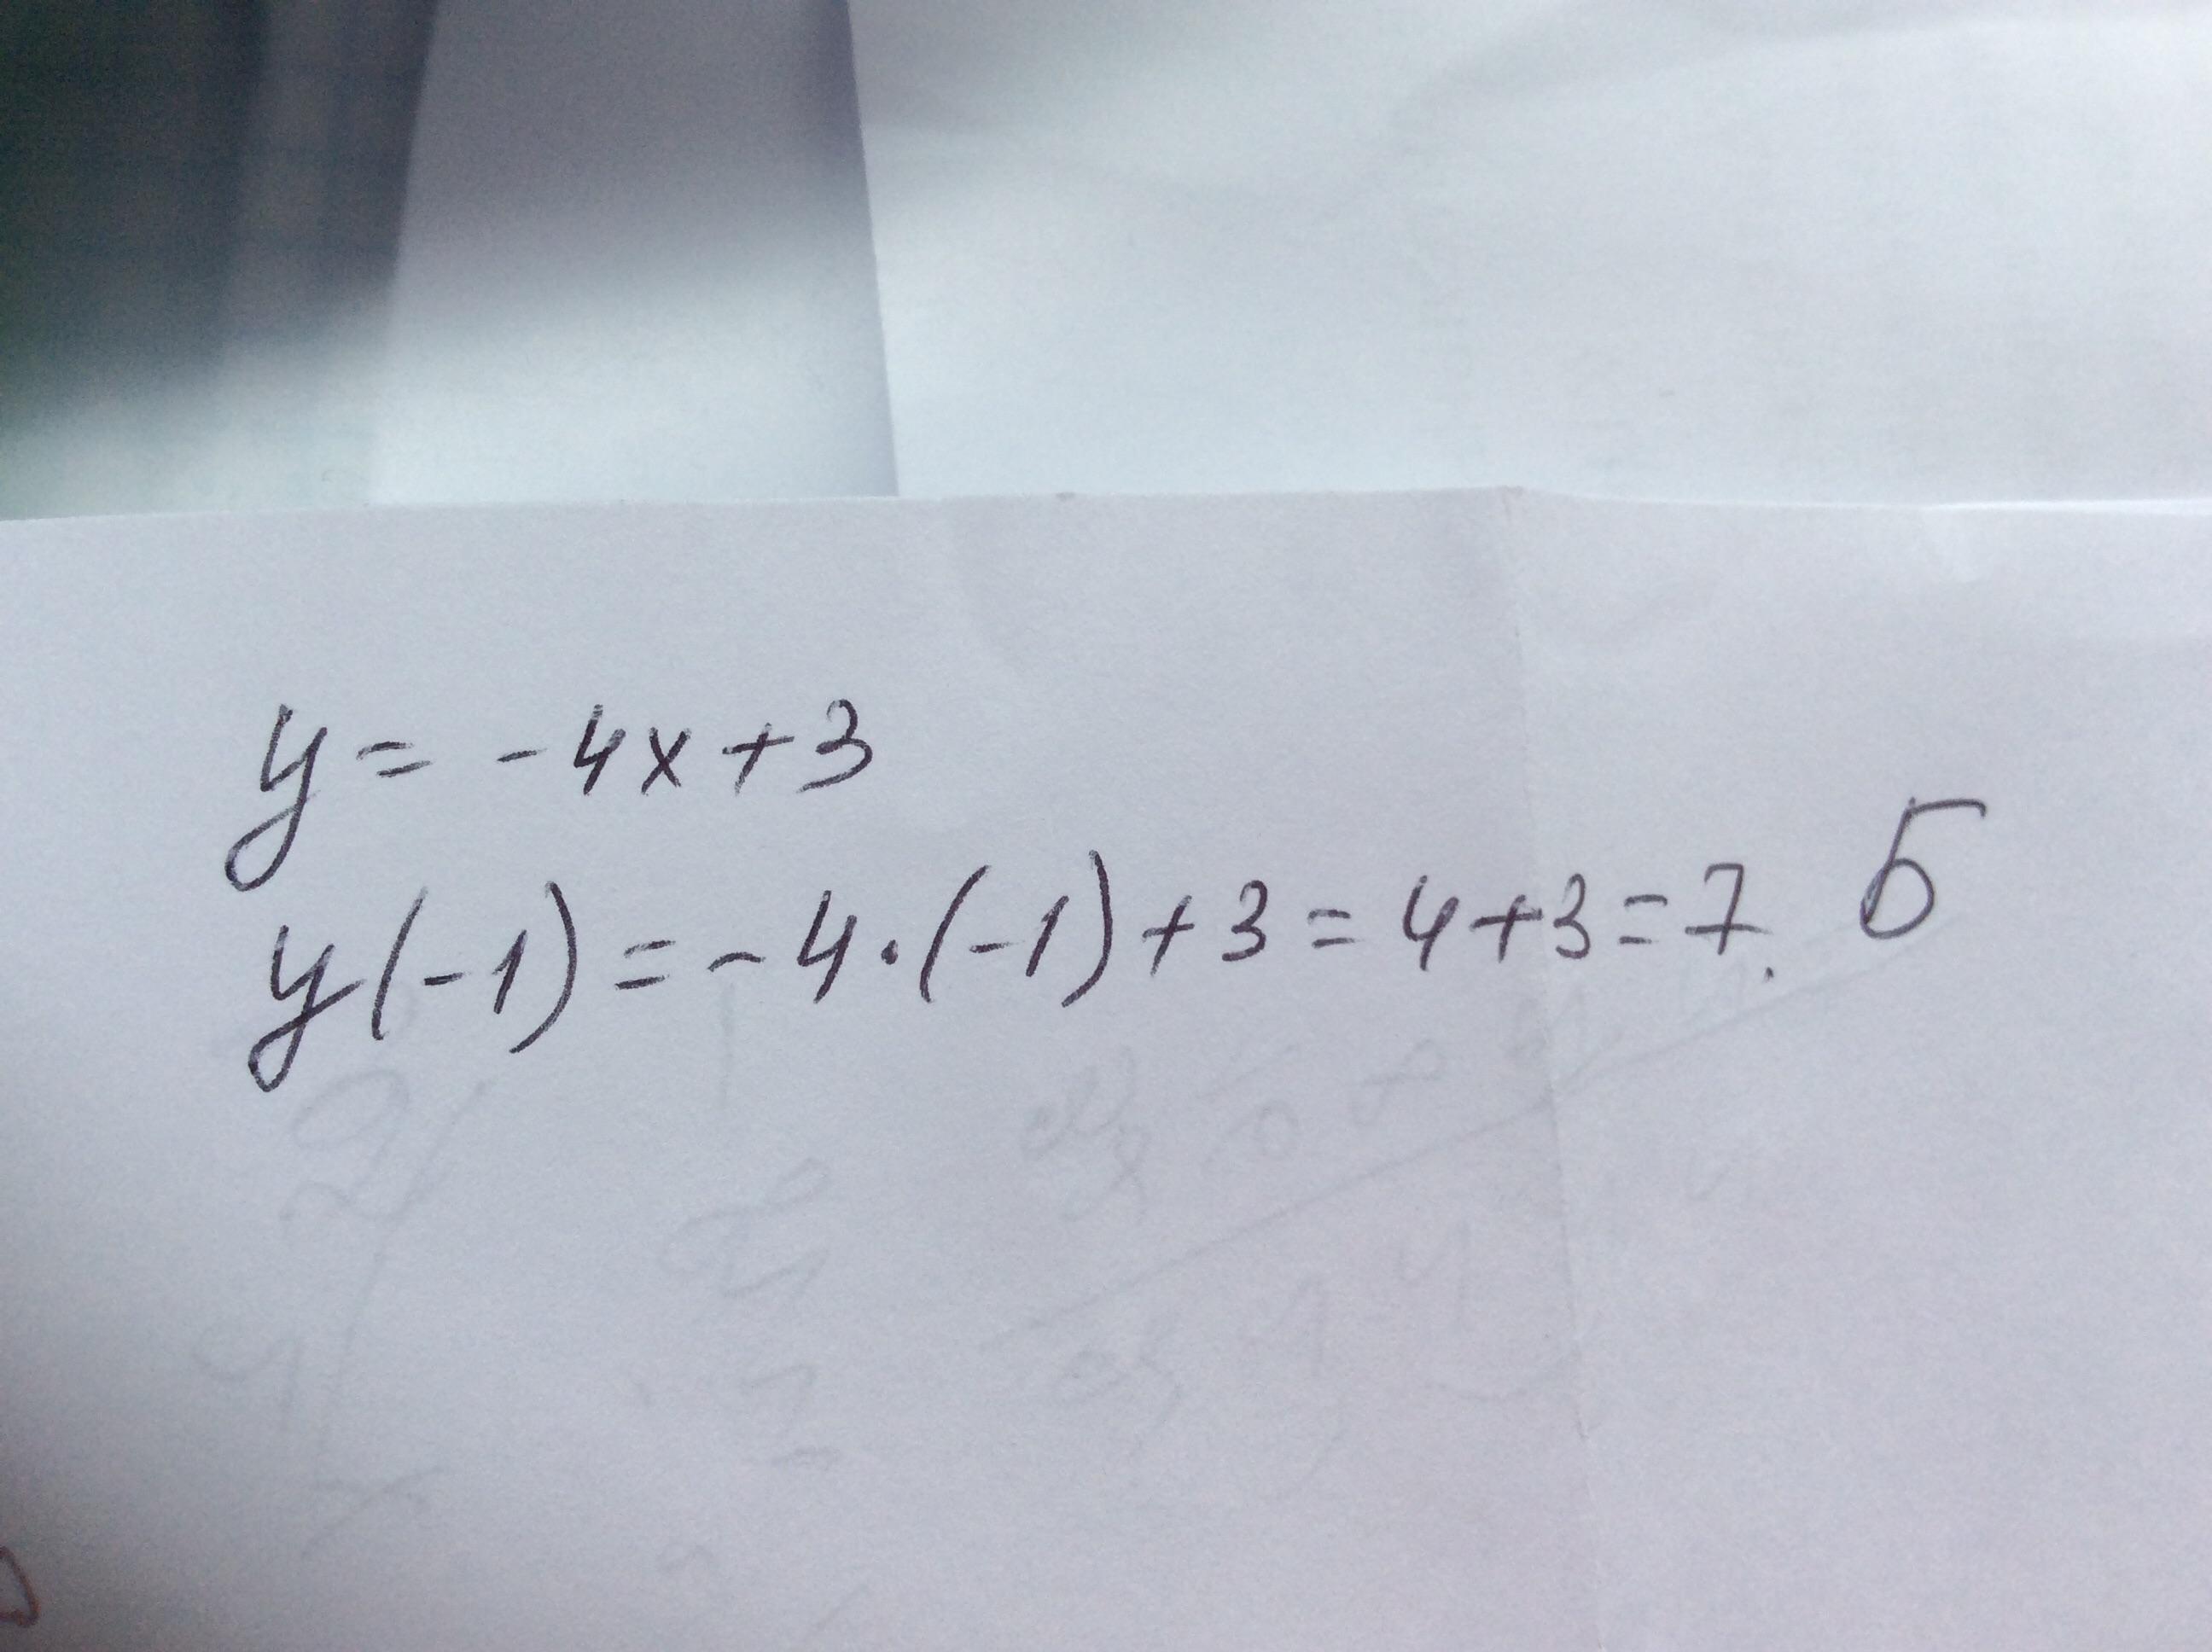 y = -4x+3
y(-1) = -4·(-1)+3 = 4+3=7. Б